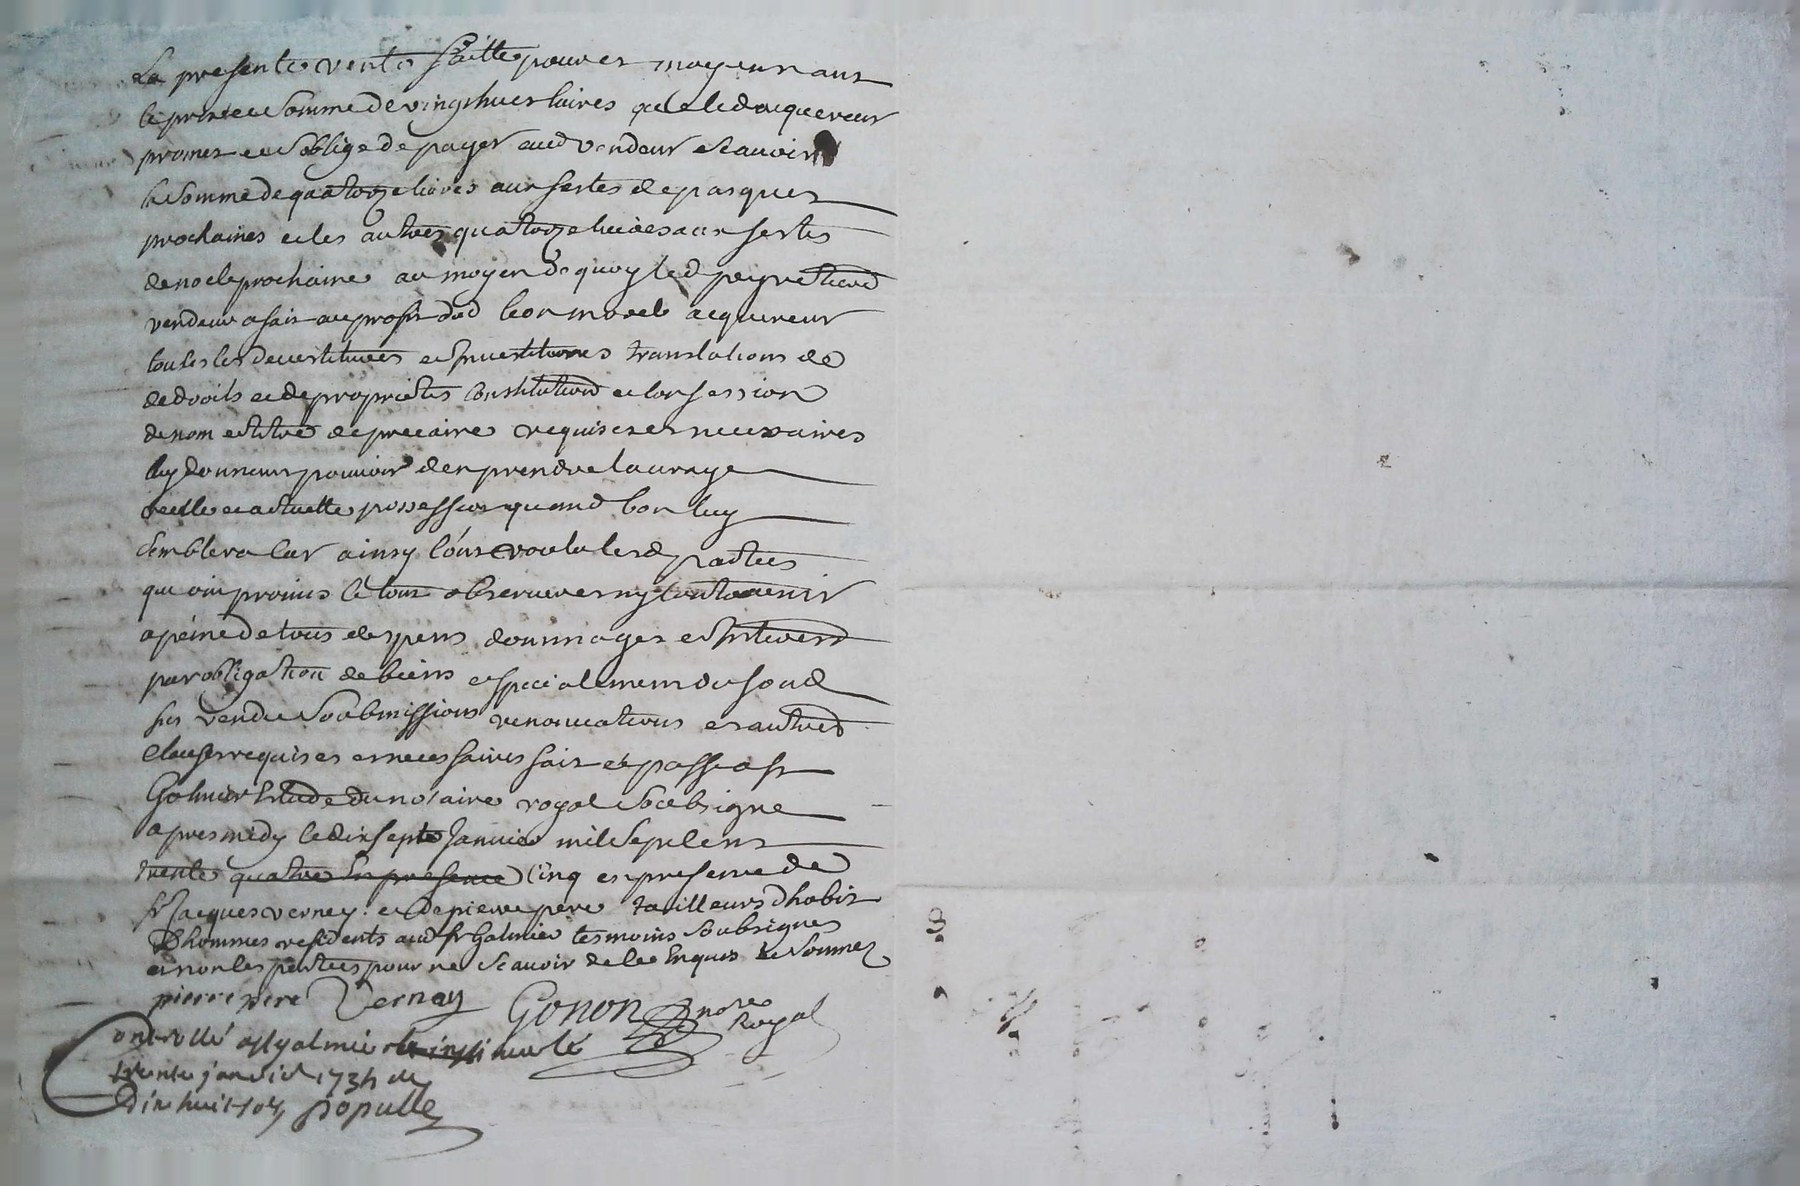 La presente vente faitte pour et moyenant
le prix de la somme de vingt huit livres que led acquereur
promet et soblige de payer aud vendeur scavoir
la somme de quatorze livres aux festes de pasques
prochaines et les autres quatorze livres aux festes
de noel prochaine au moyen de quoy led peyrethiond
vendeur a fait au profit dud leon morel acquereur
toutes les devestitures et Investitures translations de
de droits et de proprietes constitution et confession
de nom et titre de precaire requises et necessaires
luy donnant pouvoir den prendre la vraye
reelle et actuelle possession quand bon luy
semblera car ainsy lont voulu lesd parties
qui ont promis le tout observer et ny contrevenir
a peine de tous despens dommages et Interets
par obligation de biens et specialement du fond
sus vendu soubmissions renonciations et autres
clauses requises et necessaires fait et passe a st
Galmier Etude du notaire royal soubsigne
apres midy le dix sept Janvier mil sept cens
trente quatre En presence Cinq en presence de
sr Jacques verney et de pierre pere tailleurs dhabit
Dhommes residents aud st Galmier tesmoins soubsignes
et non les parties pour ne scavoir de ce Enquis et sommes
pierre pere Vernay Gonon nore Royal
Controllé a st galmier
trente janvier 1734
dix huit sols populle